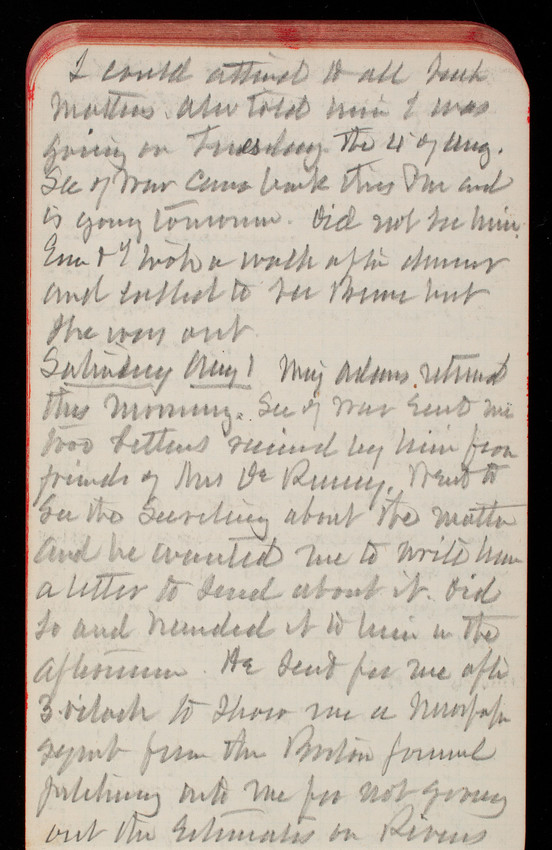 I could attend to all such
matters. Also told him I was
going on Tuesday the 4 of Aug.
Sec of War came back this PM and
is going tomorrow. Did not see him.
Em & I took a walk after dinner
and called to see Bessie but
she was out.
Saturday Aug 1 Maj Adams returned
this morning. Sec of War sent me
two letters received by him from
friends of Mrs De Russy. Went to
see the Secretary about the matter
and he wanted me to write him
a letter to send about it. Did
so and handed it to him in the
afternoon. He sent for me after
3 o'clock to show me a newspaper
from the Boston Journal
pitching into me for not giving
out the Estimates on Rivers